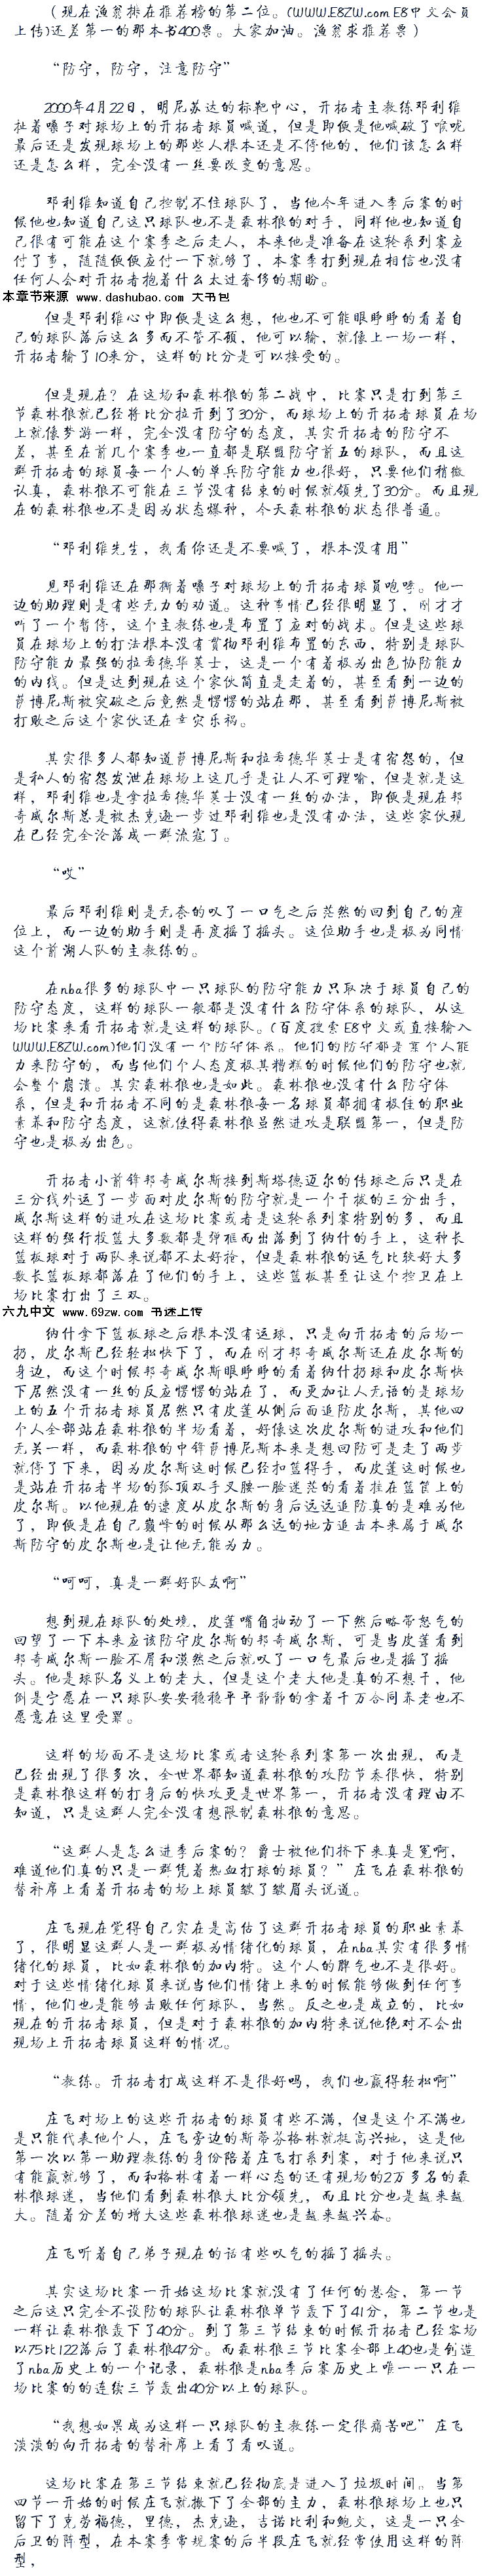 （现在渔翁排在推荐榜的第二位。(WWW.E8ZW.com E8中文会员
上传)还差第一的那本书400票。大家加油。渔翁求推荐票）
“防守，防守，注意防守”
2000年4月22日，明尼苏达的标靶中心，开拓者主教练邓利维
扯着嗓子对球场上的开拓者球员喊道，但是即便是他喊破了喉咙
最后还是发现球场上的那些人根本还是不停他的，他们该怎么样
还是怎么样，完全没有一丝要改变的意思。
邓利维知道自己控制不住球队了，当他今年进入季后赛的时
候他也知道自己这只球队也不是森林狼的对手，同样他也知道自
己很有可能在这个赛季之后走人，本来他是准备在这轮系列赛应
付了事，随随便便应付一下就够了，本赛季打到现在相信也没有
任何人会对开拓者抱着什么太过奢侈的期盼。
本章节来源 www.dashubao.com 大书包
但是邓利维心中即便是这么想，他也不可能眼睁睁的看着自
己的球队落后这么多而不管不顾，他可以输，就像上一场一样，
开拓者输了10来分，这样的比分是可以接受的。
但是现在？在这场和森林狼的第二战中，比赛只是打到第三
节森林狼就已经将比分拉开到了30分，而球场上的开拓者球员在场
上就像梦游一样，完全没有防守的态度，其实开拓者的防守不
差，甚至在前几个赛季也一直都是联盟防守前五的球队，而且这
群开拓者的球员每一个人的单兵防守能力也很好，只要他们稍微
认真，森林狼不可能在三节没有结束的时候就领先了30分。而且现
在的森林狼也不是因为状态爆种，今天森林狼的状态很普通。
“邓利维先生，我看你还是不要喊了，根本没有用”
见邓利维还在那撕着嗓子对球场上的开拓者球员咆哮。他一
边的助理则是有些无力的劝道。这种事情已经很明显了，刚才才
听了一个暂停，这个主教练也是布置了应对的战术。但是这些球
员在球场上的打法根本没有贯彻邓利维布置的东西，特别是球队
防守能力最强的拉希德华莱士，这是一个有着极为出色协防能力
的内线。但是达到现在这个家伙简直是走着的，甚至看到一边的
萨博尼斯被突破之后竟然是愣愣的站在那，甚至看到萨博尼斯被
打败之后这个家伙还在幸灾乐祸。
其实很多人都知道萨博尼斯和拉希德华莱士是有宿怨的，但
是私人的宿怨发泄在球场上这几乎是让人不可理喻，但是就是这
样，邓利维也是拿拉希德华莱士没有一丝的办法，即便是现在邦
奇威尔斯总是被杰克逊一步过邓利维也是没有办法，这些家伙现
在已经完全沦落成一群流寇了。
“哎”
最后邓利维则是无奈的叹了一口气之后茫然的回到自己的座
位上，而一边的助手则是再度摇了摇头。这位助手也是极为同情
这个前湖人队的主教练的。
在nba很多的球队中一只球队的防守能力只取决于球员自己的
防守态度，这样的球队一般都是没有什么防守体系的球队，从这
场比赛来看开拓者就是这样的球队。(百度搜索E8中文或直接输入
WWW.E8ZW.com)他们没有一个防守体系。他们的防守都是靠个人能
力来防守的，而当他们个人态度极其糟糕的时候他们的防守也就
会整个崩溃。其实森林狼也是如此。森林狼也没有什么防守体
系，但是和开拓者不同的是森林狼每一名球员都拥有极佳的职业
素养和防守态度，这就使得森林狼虽然进攻是联盟第一，但是防
守也是极为出色。
开拓者小前锋邦奇威尔斯接到斯塔德迈尔的传球之后只是在
三分线外运了一步面对皮尔斯的防守就是一个干拔的三分出手，
威尔斯这样的进攻在这场比赛或者是这轮系列赛特别的多，而且
这样的强行投篮大多数都是弹框而出落到了纳什的手上，这种长
篮板球对于两队来说都不太好抢，但是森林狼的运气比较好大多
数长篮板球都落在了他们的手上，这些篮板甚至让这个控卫在上
场比赛打出了三双。
六九中文 www.69zw.com 书迷上传
纳什拿下篮板球之后根本没有运球，只是向开拓者的后场一
扔，皮尔斯已经轻松快下了，而在刚才邦奇威尔斯还在皮尔斯的
身边，而这个时候邦奇威尔斯眼睁睁的看着纳什扔球和皮尔斯快
下居然没有一丝的反应愣愣的站在了，而更加让人无语的是球场
上的五个开拓者球员居然只有皮蓬从侧后面追防皮尔斯，其他四
个人全部站在森林狼的半场看着，好像这次皮尔斯的进攻和他们
无关一样，而森林狼的中锋萨博尼斯本来是想回防可是走了两步
就停了下来，因为皮尔斯这时候已经扣篮得手，而皮蓬这时候也
是站在开拓者半场的弧顶双手叉腰一脸迷茫的看着挂在篮筐上的
皮尔斯。以他现在的速度从皮尔斯的身后远远追防真的是难为他
了，即便是在自己巅峰的时候从那么远的地方追击本来属于威尔
斯防守的皮尔斯也是让他无能为力。
“呵呵，真是一群好队友啊”
想到现在球队的处境，皮蓬嘴角抽动了一下然后略带怒气的
回望了一下本来应该防守皮尔斯的邦奇威尔斯，可是当皮蓬看到
邦奇威尔斯一脸不屑和漠然之后就叹了一口气最后也是摇了摇
头。他是球队名义上的老大，但是这个老大他是真的不想干，他
倒是宁愿在一只球队安安稳稳平平静静的拿着千万合同养老也不
愿意在这里受罪。
这样的场面不是这场比赛或者这轮系列赛第一次出现，而是
已经出现了很多次，全世界都知道森林狼的攻防节奏很快，特别
是森林狼这样的打身后的快攻更是世界第一，开拓者没有理由不
知道，只是这群人完全没有想限制森林狼的意思。
“这群人是怎么进季后赛的？爵士被他们挤下来真是冤啊，
难道他们真的只是一群凭着热血打球的球员？”庄飞在森林狼的
替补席上看着开拓者的场上球员皱了皱眉头说道。
庄飞现在觉得自己实在是高估了这群开拓者球员的职业素养
了，很明显这群人是一群极为情绪化的球员，在nba其实有很多情
绪化的球员，比如森林狼的加内特。这个人的脾气也不是很好。
对于这些情绪化球员来说当他们情绪上来的时候能够做到任何事
情，他们也是能够击败任何球队，当然。反之也是成立的，比如
现在的开拓者球员，但是对于森林狼的加内特来说他绝对不会出
现场上开拓者球员这样的情况。
“教练。开拓者打成这样不是很好吗，我们也赢得轻松啊”
庄飞对场上的这些开拓者的球员有些不满，但是这个不满也
是只能代表他个人，庄飞旁边的斯蒂芬格林就挺高兴地，这是他
第一次以第一助理教练的身份陪着庄飞打系列赛，对于他来说只
有能赢就够了，而和格林有着一样心态的还有现场的2万多名的森
林狼球迷，当他们看到森林狼大比分领先，而且比分也是越来越
大。随着分差的增大这些森林狼球迷也是越来越兴奋。
庄飞听着自己弟子现在的话有些叹气的摇了摇头。
其实这场比赛一开始这场比赛就没有了任何的悬念，第一节
之后这只完全不设防的球队让森林狼单节轰下了41分，第二节也是
一样让森林狼轰下了40分。到了第三节结束的时候开拓者已经客场
以75比122落后了森林狼47分。而森林狼三节比赛全部上40也是创造
了nba历史上的一个记录，森林狼是nba季后赛历史上唯一一只在一
场比赛的的连续三节轰出40分以上的球队。
“我想如果成为这样一只球队的主教练一定很痛苦吧”庄飞
淡淡的向开拓者的替补席上看了看叹道。
这场比赛在第三节结束就已经彻底是进入了垃圾时间。当第
四节一开始的时候庄飞就撤下了全部的主力，森林狼球场上也只
留下了克劳福德，里德，杰克逊，吉诺比利和鲍文，这是一只全
后卫的阵型，在本赛季常规赛的后半段庄飞就经常使用这样的阵
型，